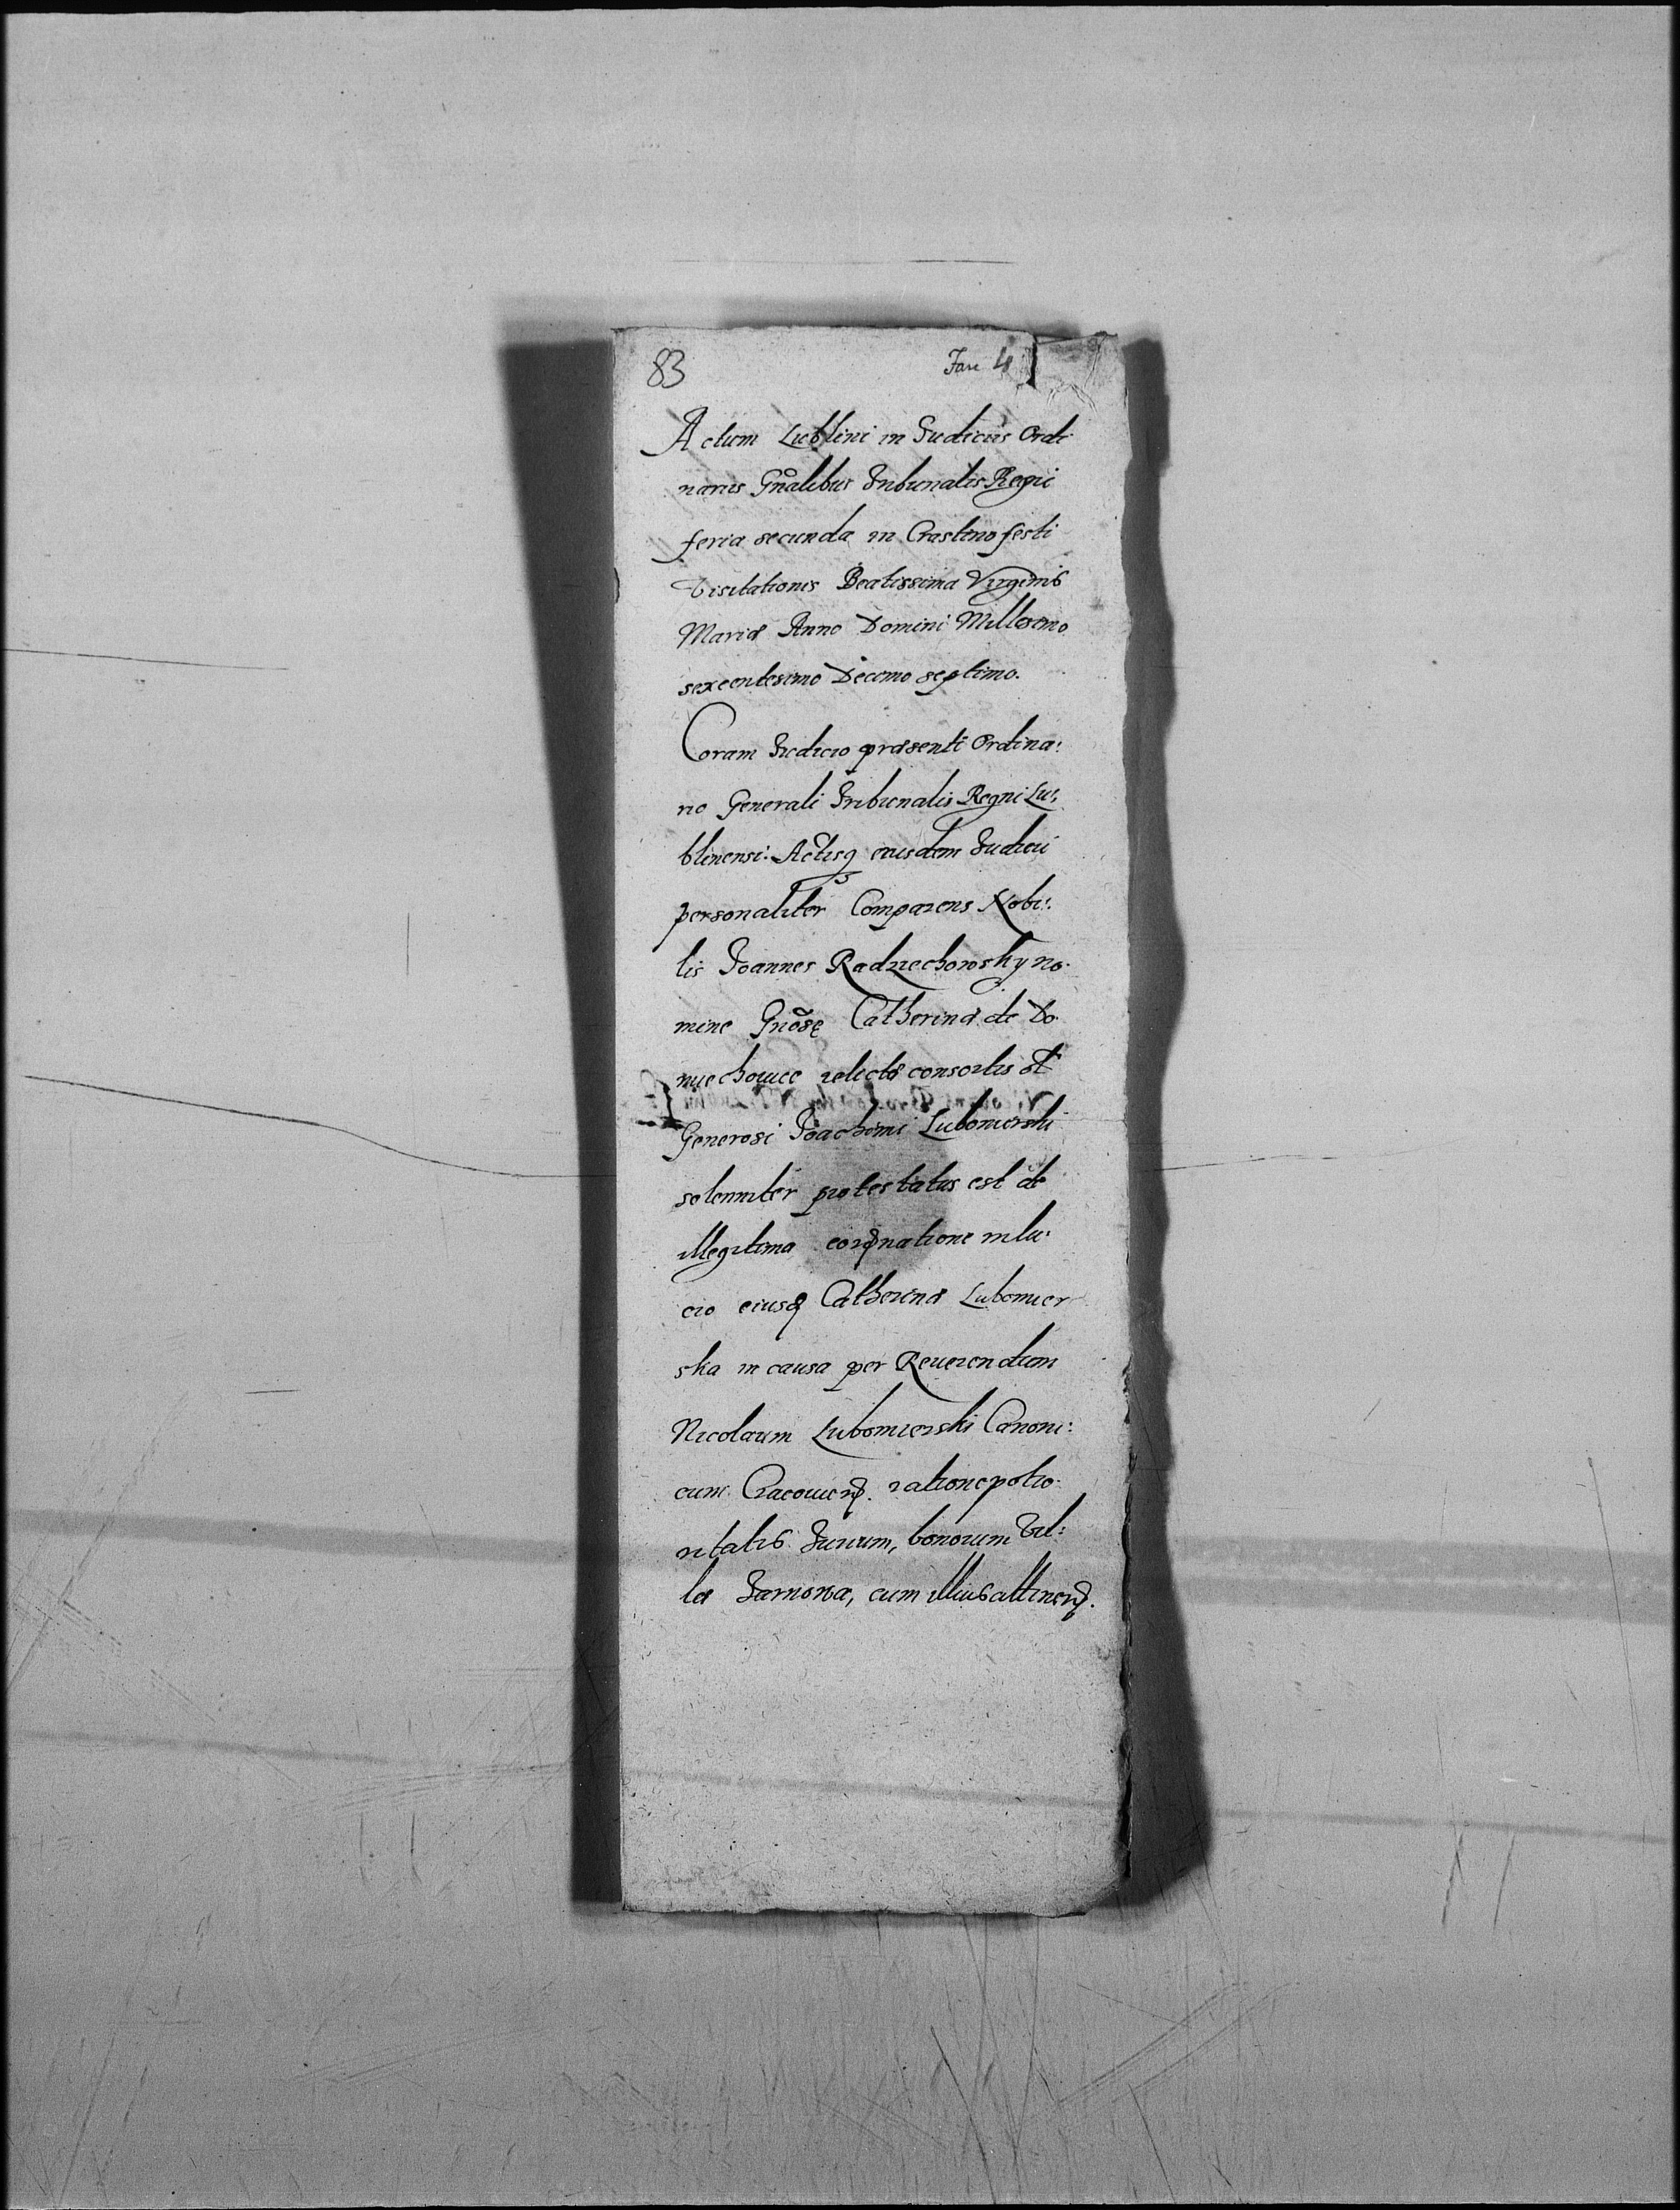 83
Fan 4
Actum Lublini in Iudiciis Ordi
nariis Gnãlibus Tribunalis Regni
feria secunda in Crastino festi
Visitationis Beatissima Virginis
Mariæ Anno Domini Millesimo
sexcentesimo Decimo septimo.
Coram Iudicio præsenti Ordina:
rio Generali Tribunalis Regni Lu:
blinensi: Actisq eiusdem Iudicii
personaliter Comparens Nobi:
lis Ioannes Radziechowsky no.
mine Gnõsę Catherinæ de Do.
niechowice relictæ consortis ol
Generosi Ioachimi Lubomirski
solenniter protestatus est de
illegitima cond̃natione in lu:
cro eiusd Catherinæ Lubomier
ska in causa per Reuerendum
Nicolaum Lubomierski Canoni:
cum Cracouien. ratione potio.
ritatis Iurium, bonorum Vil:
læ Tarnowa, cum illius attinen.